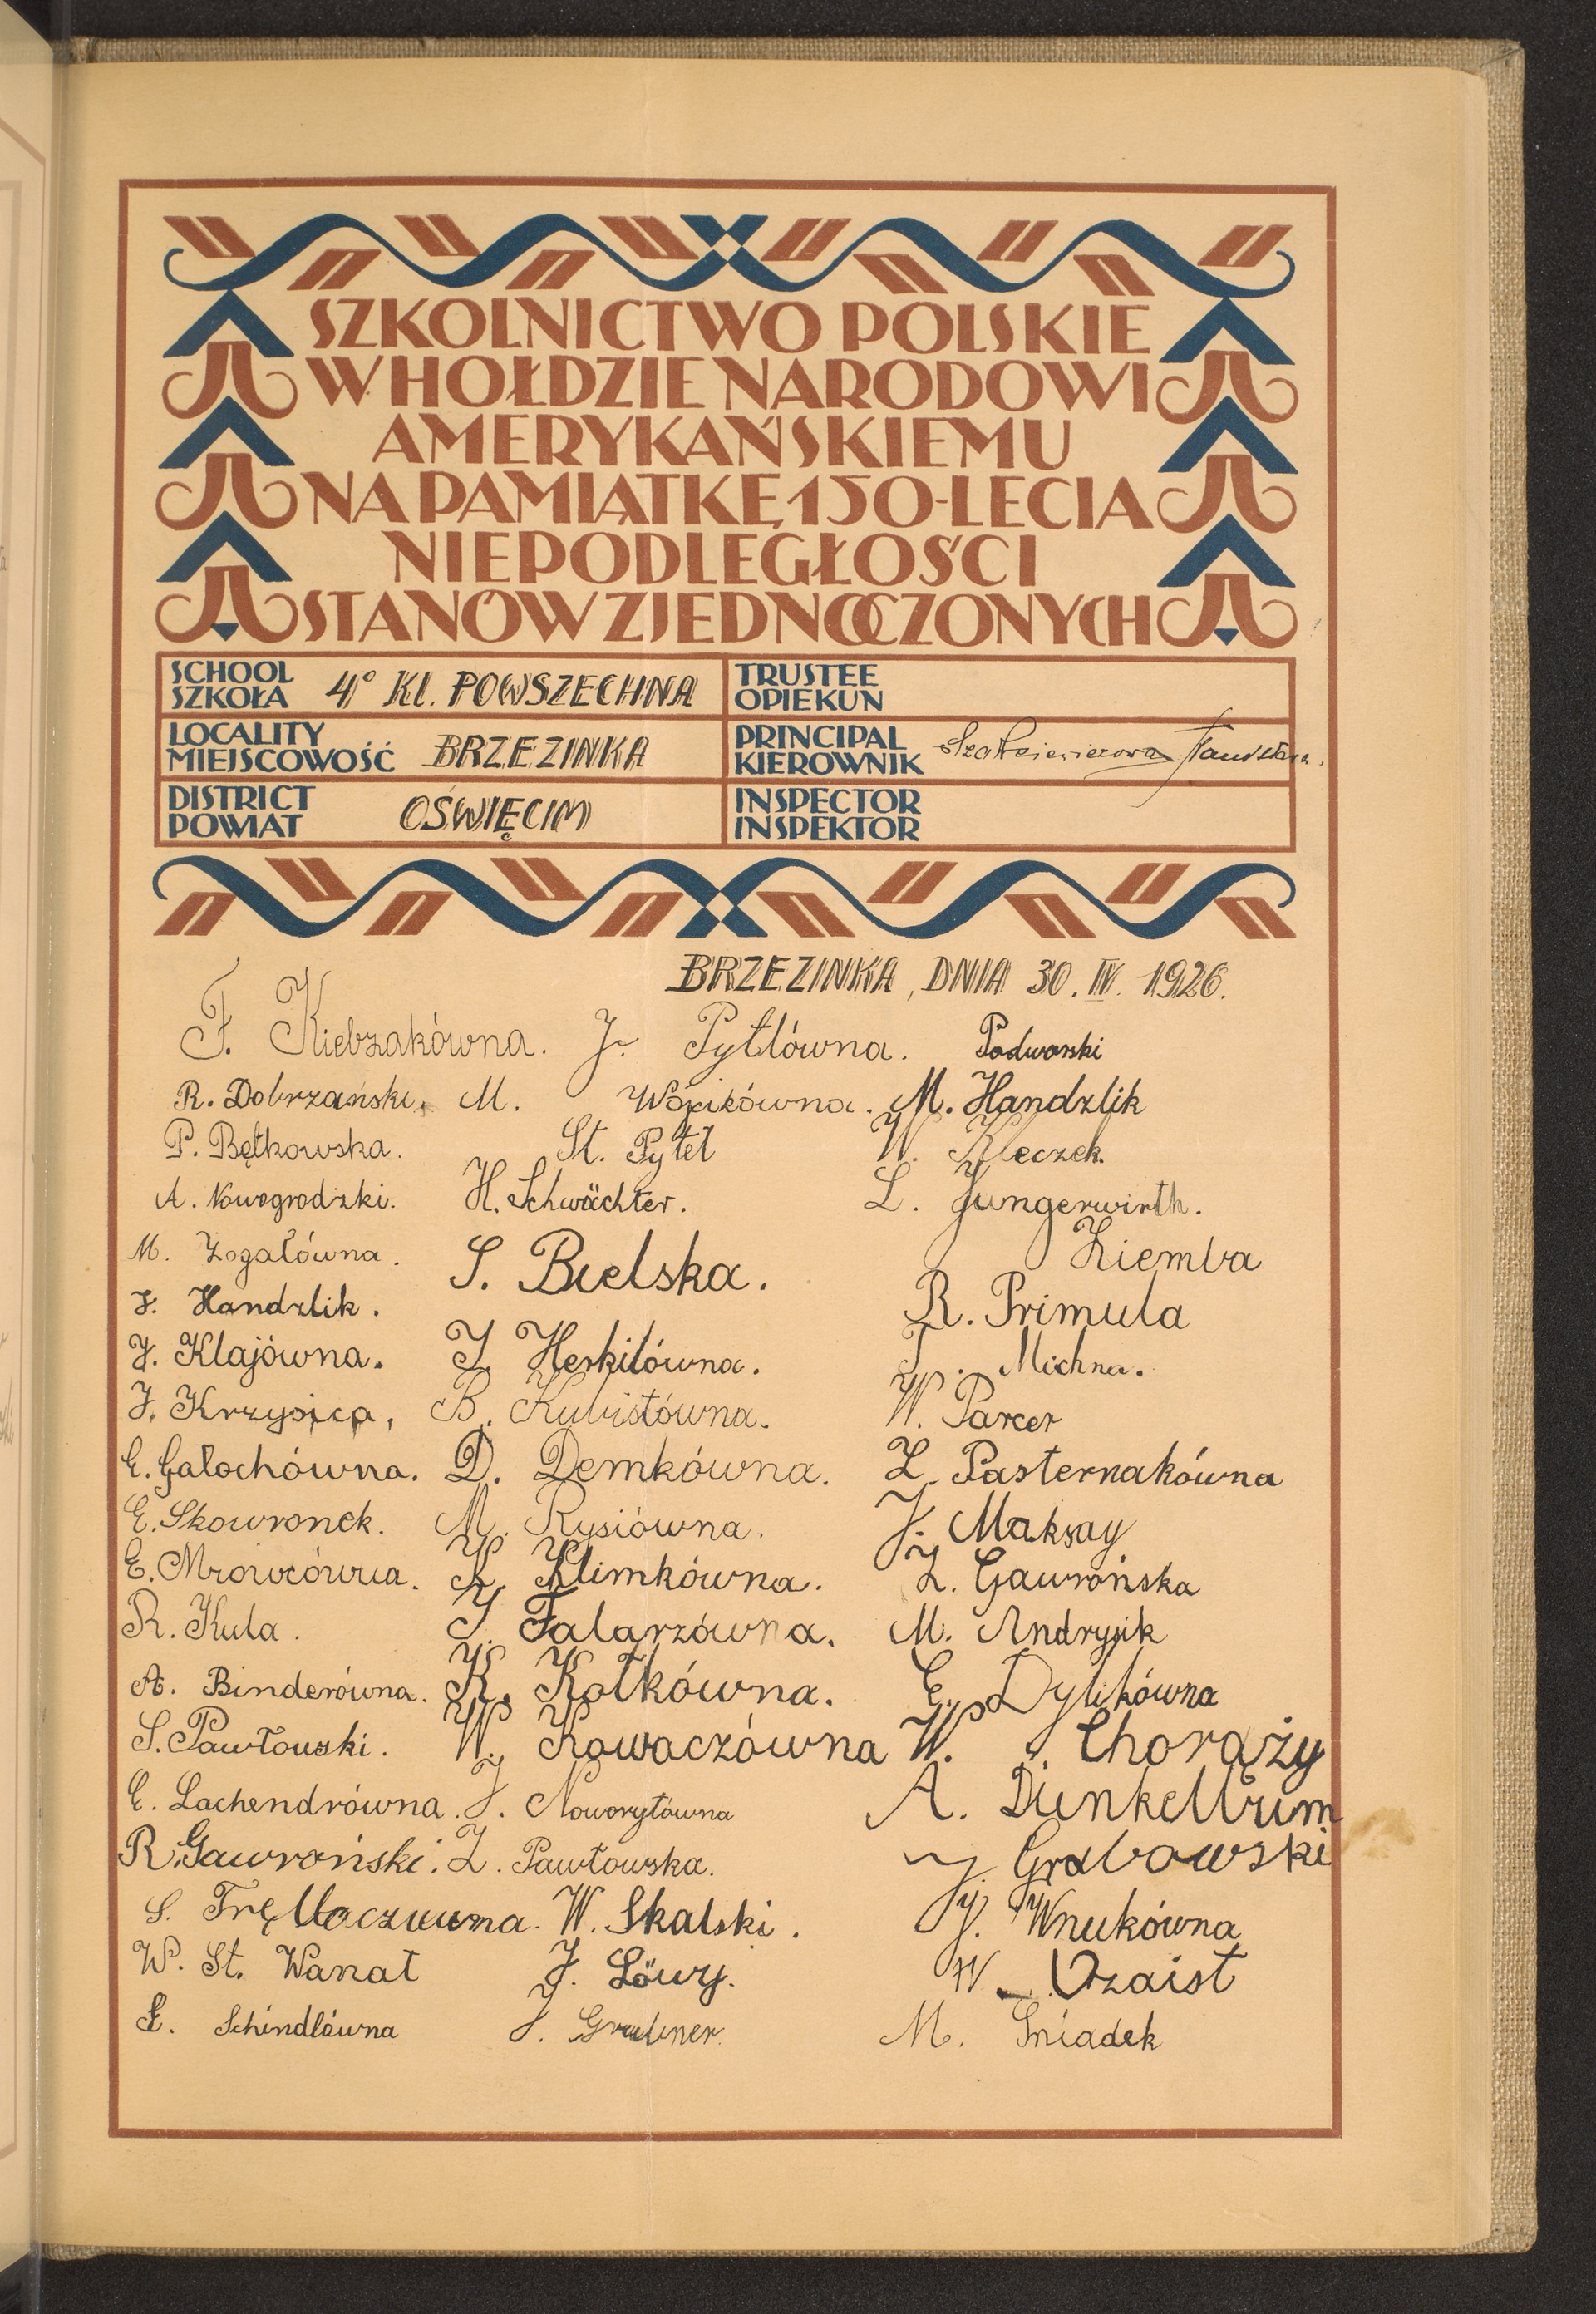 SZKOLNICTWO POLSKIE
W HOŁDZIE NARODOWI
AMERYKAŃSKIEMU
NA PAMIĄTKĘ 150-LECIA
NIEPODLEGŁOŚCI
STANÓW ZJEDNOCZONYCH
SCHOOL
SZKOŁA 4° Kl. POWSZECHNA
TRUSTEE
OPIEKUN
LOCALITY
MIEJSCOWOŚĆ BRZEZINKA
PRINCIPAL
KIEROWNIK
DISTRICT
POWIAT OŚWIĘCIM
INSPECTOR
INSPEKTOR
BRZEZINKA, DNIA 30. IV. 1926.
F. Kiebzakówna. J. Pytlówna. Podworski
R. Dobrzański. M. Wójcikówna. M. Handzlik
P. Bętkowska. St. Pytel W. Kleczek.
A. Nowogrodzki. H. Schwächter. L. Jungerwirth.
M. Żogałówna. S. Bielska. Ziemba
J. Handzlik. R. Primula
J. Klajówna. J. Herkilówna. J. Michna.
J. Krzysica, B. Kubistówna. W. Parcer
E. Gałochówna. D. Demkówna. Z. Pasternakówna
E. Skowronek. M. Rysiówna. J. Maksay
E. Mrowcówna. K. Klimkówna. Z. Gawrońska
R. Kula. J. Falarzówna. M. Andrysik
A. Binderówna. K. Kołkówna. E. Dylikówna
S. Pawłowski. W. Kowaczówna W. Chorąży
E. Lachendrówna. J. Noworytówna A. Dunkelblum
R. Gawroński. Z. Pawłowska. J. Grabowski
S. W. Skalski. J. Wnukówna
W. St. Wanat J. Löwy. W. Ozaist
E. Schindlówna J. Grubner. M. Śniadek